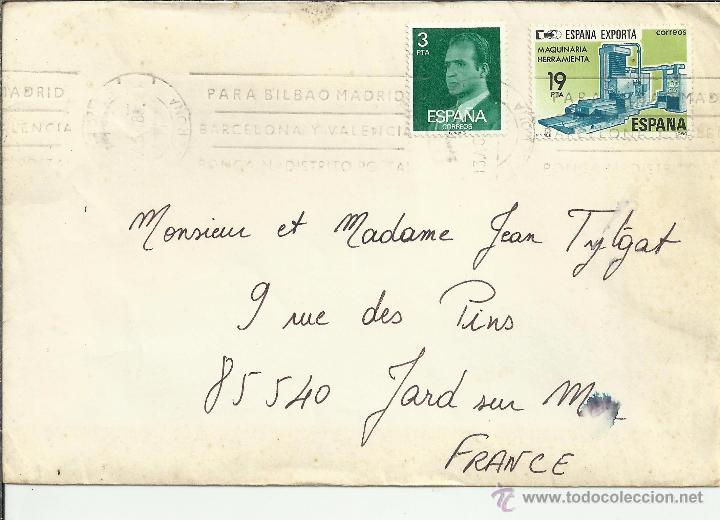 3
PTA
ESPAÑA
CORREOS
ESPAÑA EXPORTA
correos
MAQUINARIA
HERRAMIENTA
19
PTA
ESPAÑA
MADRID
PARA BILBAO MADRID
BARCELONA Y VALENCIA
PONGA N. DISTRITO POSTAL
Monsieur et Madame Jean Tytgat
9 rue des Pins
85540 Jard sur
FRANCE
www.todocoleccion.net